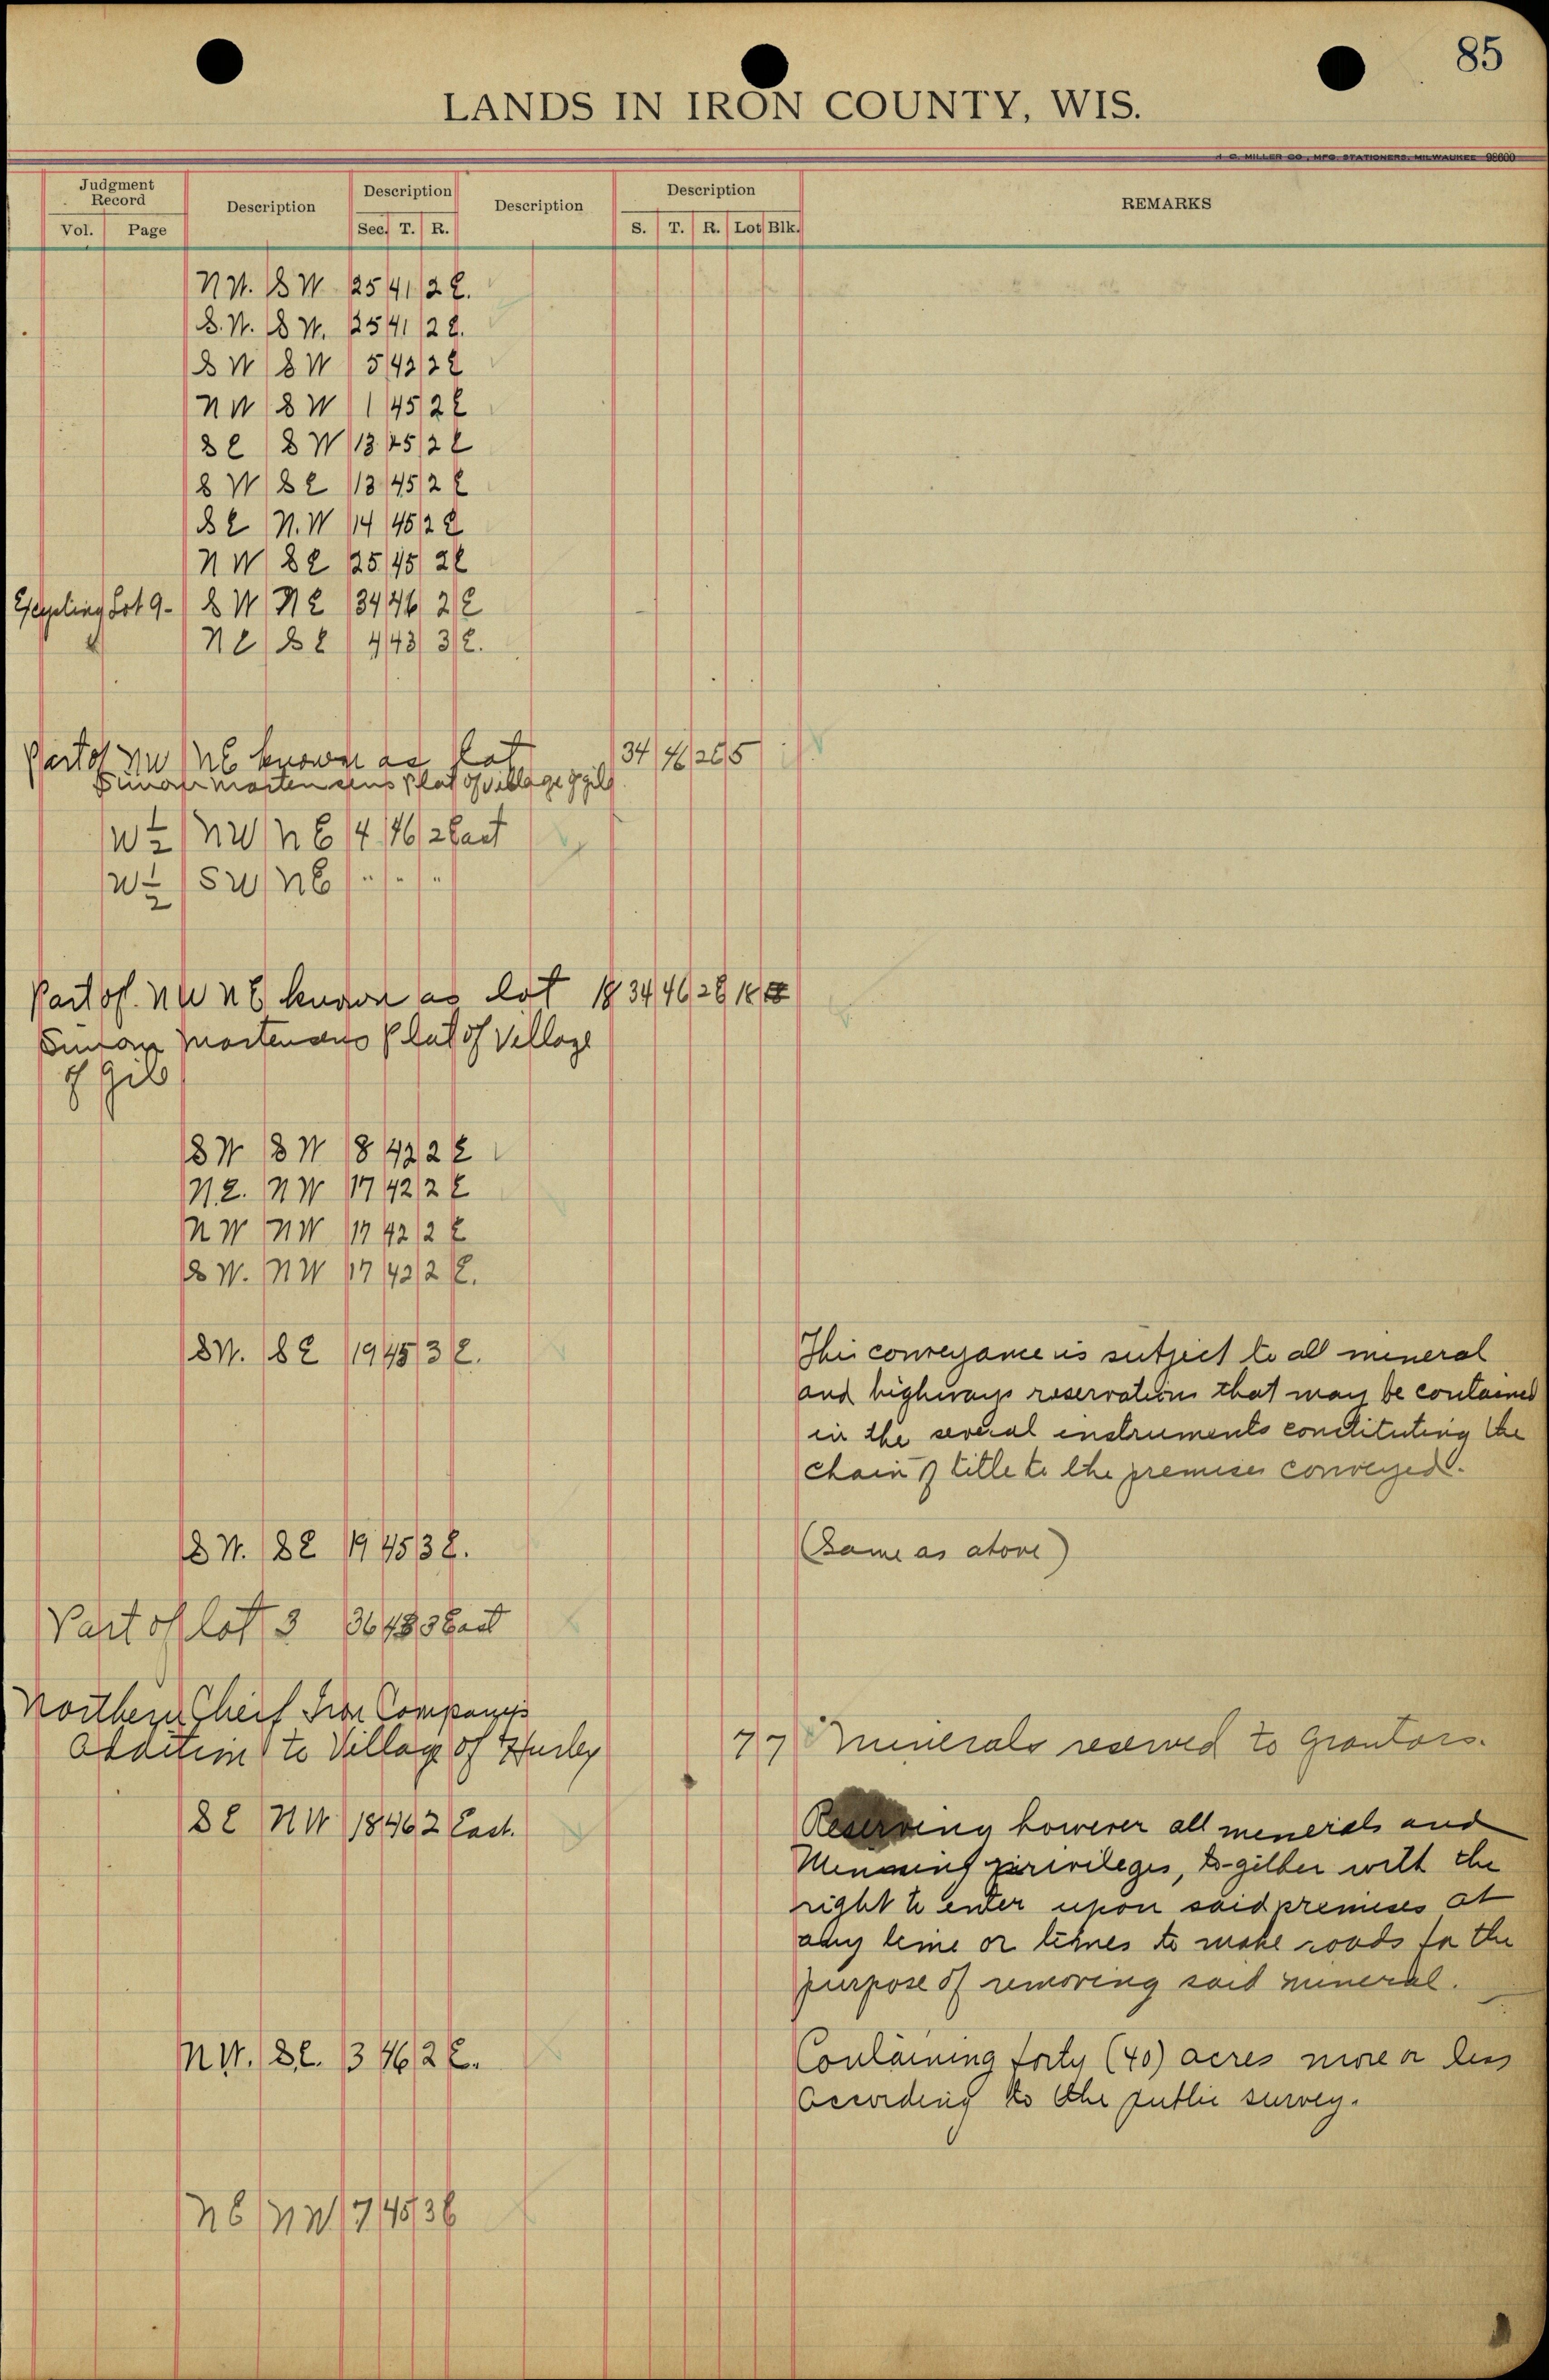 85
LANDS IN IRON COUNTY, WIS.
H. C. MILLER CO., MFG. STATIONERS, MILWAUKEE 98600
Judgment Record Description Description Description Description REMARKS
Vol. Page Sec. T. R. S. T. R. Lot Blk.
N W. S W 25 41 2 E.
S. W. S W. 25 41 2 E.
S W S W 5 42 2 E
N W S W 1 45 2 E
S E S W 13 45 2 E
S W S E 13 45 2 E
S E N. W 14 45 2 E
N W S E 25 45 2 E
Excepting Lot 9 - S W N E 34 46 2 E
N E S E 4 43 3 E.
Part of NW NE known as Lot 34 46 2E 5
Simon Mortensens Plat of Village of Gile
W 1/2 NW NE 4 46 2 East
W 1/2 SW NE " " "
Part of NW NE known as lot 18 34 46 2E 18
Simon Mortensens Plat of Village
of Gile
S W S W 8 42 2 E
N. E. N W 17 42 2 E
N W N W 17 42 2 E
S W. N W 17 42 2 E.
S W. S E 19 45 3 E. This conveyance is subject to all mineral
and highways reservations that may be contained
in the several instruments constituting the
chain of title to the premises conveyed.
S W. S E 19 45 3 E. (Same as above)
Part of lot 3 36 43 3 East
Northern Cheif Iron Companys
Addition to Village of Hurley 7 7 Minerals reserved to Grantors.
S E N W 18 46 2 East. Reserving however all minerals and
Minning privileges, to-gether with the
right to enter upon said premises at
any time or times to make roads for the
purpose of removing said mineral.
N W. S E. 3 46 2 E. Containing forty (40) acres more or less
according to the public survey.
NE NW 7 45 3E